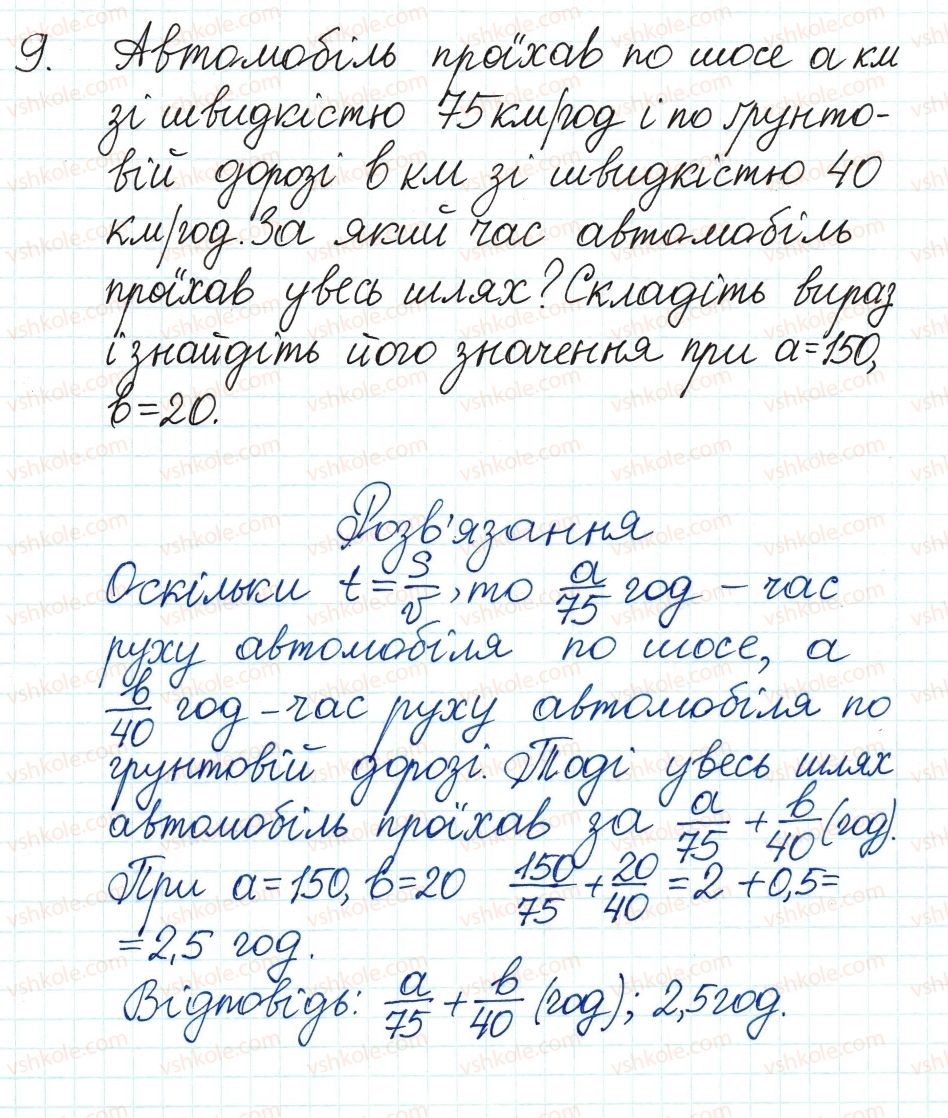 9. Автомобіль проїхав по шосе a км
зі швидкістю 75 км/год і по ґрунто-
вій дорозі в км зі швидкістю 40
км/год. За який час автомобіль
проїхав увесь шлях? Складіть вираз
і знайдіть його значення при a=150,
в=20.
Розв'язання
Оскільки t = S/v, то a/75 год – час
руху автомобіля по шосе, а
в/40 год – час руху автомобіля по
грунтовій дорозі. Тоді увесь шлях
автомобіль проїхав за a/75 + в/40 (год).
При a=150, в=20 150/75 + 20/40 = 2 + 0,5 =
= 2,5 год.
Відповідь: a/75 + в/40 (год); 2,5 год.